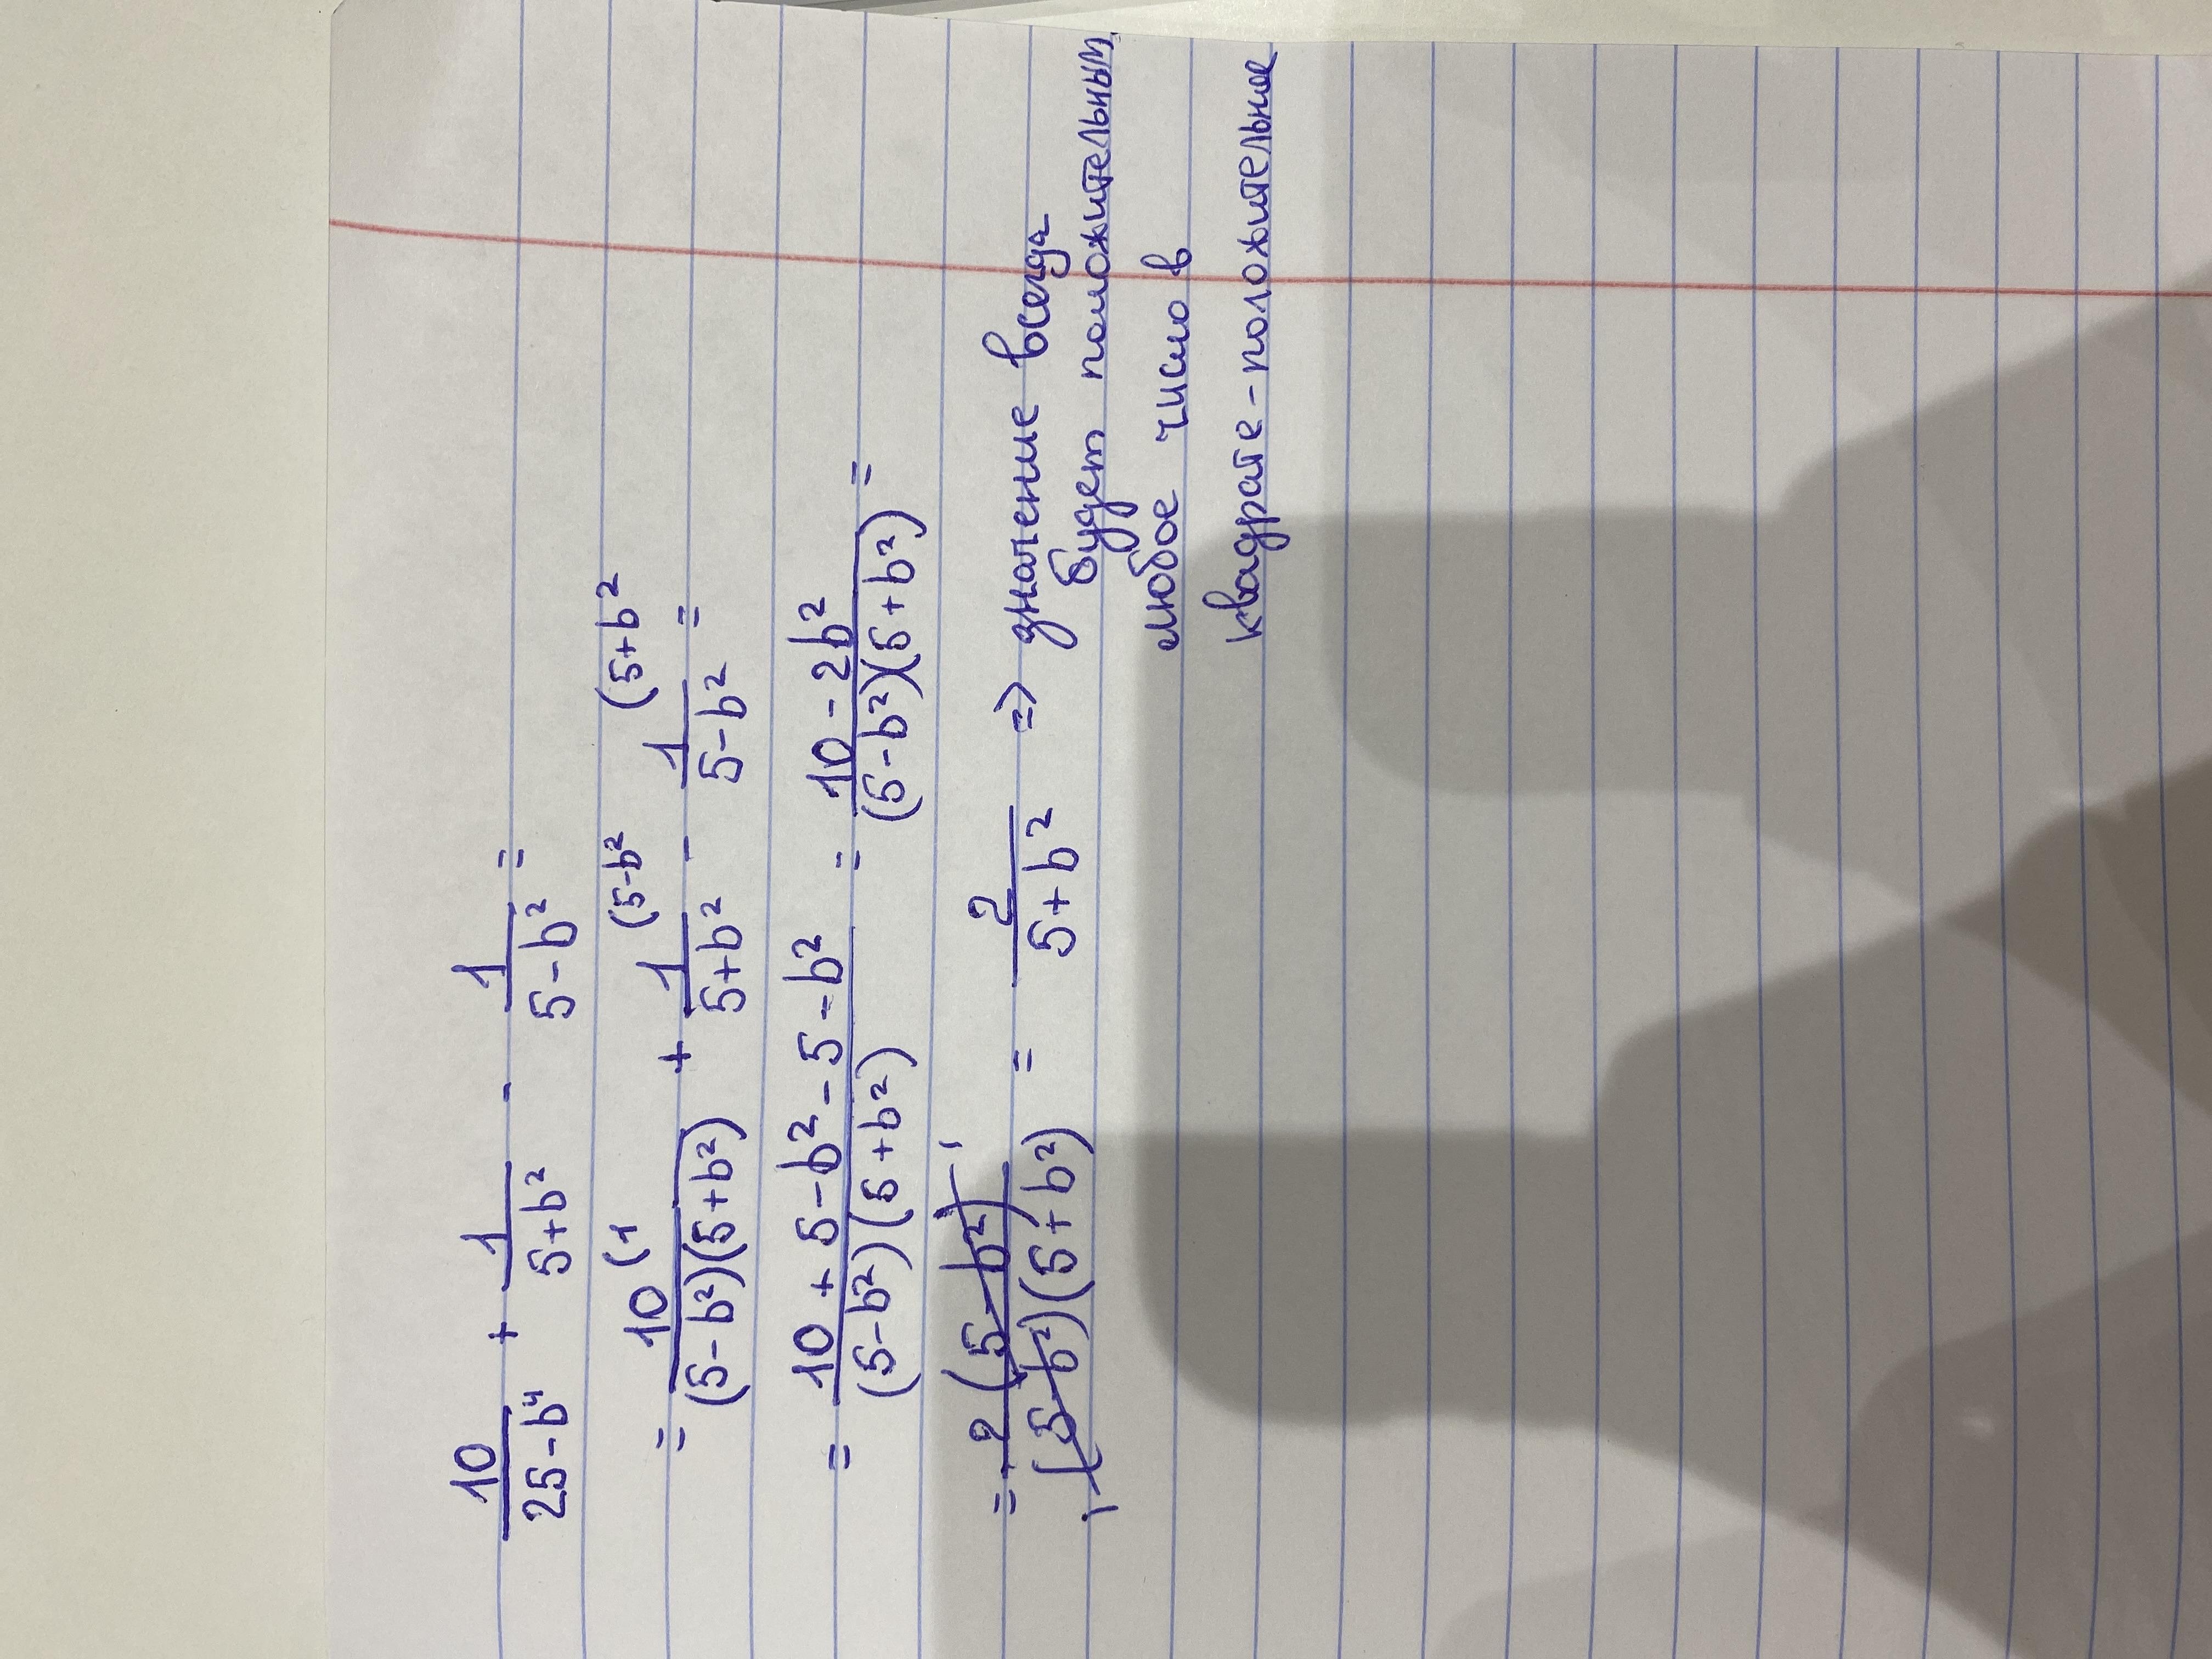 10/(25-b⁴) + 1/(5+b²) - 1/(5-b²) =
= 10(1/((5-b²)(5+b²)) + 1(5-b²/(5+b²) - 1(5+b²/(5-b²) =
= (10+5-b²-5-b²)/((5-b²)(5+b²)) = (10-2b²)/((5-b²)(5+b²)) =
= 2(5-b²)¹/₁(5-b²)(5+b²) = 2/(5+b²) => значение всегда
будет положительным,
любое число в
квадрате - положительное